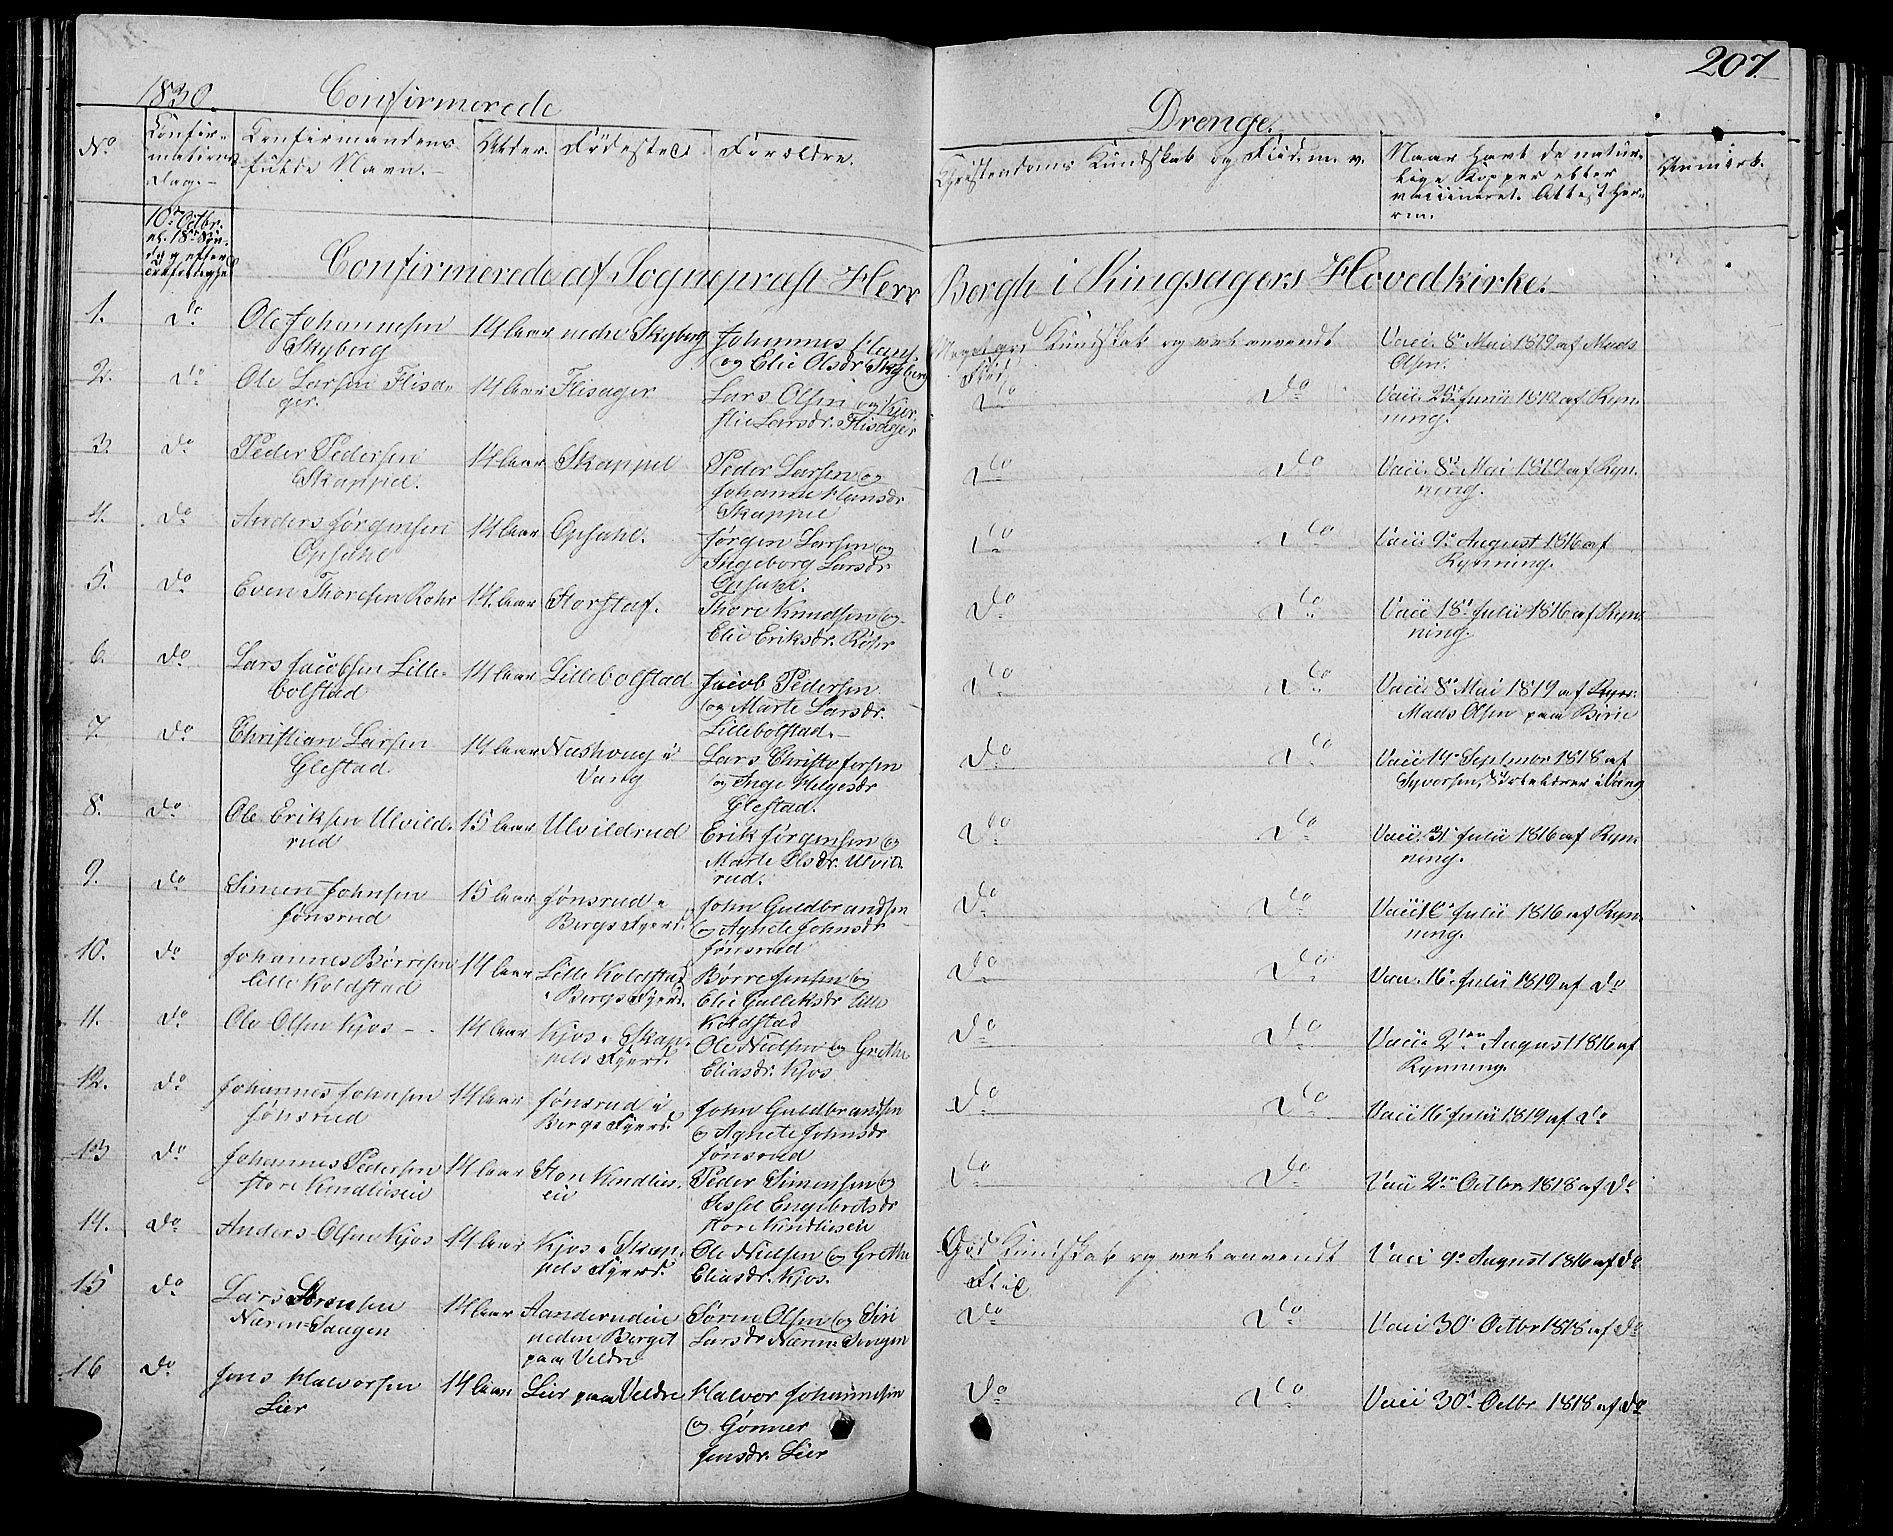 207
1830. Confirmerede Drenge.
No Confirmations Dag.- Confirmandens fulde Navn.- Alder. Fødested. Forældre. Christendoms Kundskab og Flid m. v. Naar havt de naturlige Kopper eller vaccineret. Attest herom. Anmærk.
10de Octbr.
Confirmerede af Sognepræst Herr Bergh i Ringsagers Hovedkirke.
1. do Ole Johannesen Skyberg 14 Aar nedre Skyberg Johannes Hans. og Elie Olsdr. Skyberg Meget god Kundskab og vel anvendt Flid Vacc. 8de Mai 1819 af Mads Olsen.
2. do Ole Larsen Flisager. 14 Aar Flisager Lars Olsen og Kjerstie Larsdr. Flisager do do Vacc. 25de Junii 1819 af Rynning.
3. do Peder Pedersen Skappel. 14 Aar Skappel Peder Larsen og Johanne Hansdr. Skappel do do Vacc. 8de Mai 1819 af Rynning.
4. do Anders Jørgensen Opsahl 14 Aar Opsahl. Jørgen Larsen og Ingeborg Larsdr. Opsahl. do do Vacc. 9de August 1816 af Rynning.
5. do Even Thoresen Rohr 14 Aar Storstaf. Thore Knudsen og Elie Eriksdr. Rohr do do Vacc. 18de Julii 1816 af Rynning.
6. do Lars Jacobsen Lillebolstad 14 Aar Lillebolstad Jacob Pedersen og Marte Larsdr. Lillebolstad.- do do Vacc. 8de Mai 1819 af Mads Olsen paa Birie
7. do Christian Larsen Glestad. 14 Aar i Vang Lars Christofersen og Inge Helgesdr. Glestad. do do Vacc. 14de Septembr 1818 af Syversen, Skolelærer i Vang
8. do Ole Eriksen Ulvildrud 15 Aar Ulvildrud Erik Jørgensen og Marte Olsdr. Ulvildrud. do do Vacc. 31te Julii 1816 af Rynning.
9. do Simen Johnsen Jønsrud 15 Aar Jønsrud i Bergs Fjerd. John Guldbrandsen og Agnete Johnsdr. Jønsrud do do Vacc. Julii 1816 af Rynning.
10. do Johannes Børresen lille Koldstad 14 Aar Lille Koldstad i Bergs Fjerd. Børre Jensen og Elie Gulliksdr. lille Koldstad do do Vacc. 16de Julii 1819 af do
11. do Ole Olsen Kjos - 14 Aar Kjos i Skappels Fjerd. Ole Nielsen og Grethe Eliasdr. Kjos do do Vacc. 2den August 1816 af Rynning.
12. do Johannes Johnsen Jønsrud 14 Aar Jønsrud i Bergs Fjerd. John Guldbrandsen og Agnete Johnsdr. Jønsrud do do Vacc. 16de Julii 1819 af do
13 do Johannes Pedersen store Kindlieseie 14 Aar Store Kindlieseie Peder Simensen og Sissel Engebretsdr. store Kindlieseie do do Vacc. 2den Octbr. 1818 af do
14. do Anders Olsen Kjos 14 Aar Kjos i Skappels Fjerd. Ole Nielsen og Grethe Eliasdr. Kjos. God Kundskab og vel anvendt Flid Vacc. 9de August 1816 af do
15 do Lars Sørensen Næren-Saugen 14 Aar neden Berget paa Veldre Søren Olsen og Siri Larsdr. Næren-Saugen do do Vacc. 30te Octbr. 1818 af do
16 do Jens Halvorsen Lier 14 Aar Lier paa Veldre Halvor Johannesen og Gønner Jensdr. Lier do do Vacc. 30te Octbr. 1818 af do